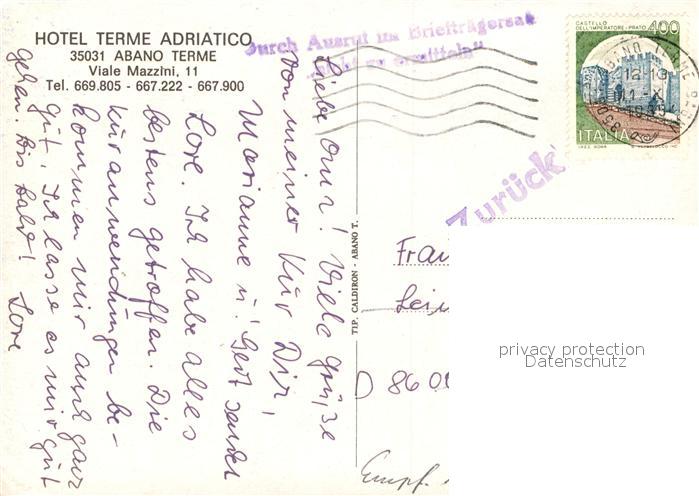 HOTEL TERME ADRIATICO
35031 ABANO TERME
Viale Mazzini, 11
Tel. 669.805 - 667.222 - 667.900
Durch Ausruf im Briefträgersaal
"nicht zu ermitteln"
CASTELLO
DELL'IMPERATORE - PRATO
400
ITALIA
ABANO TERME
Zurück
Liebe Omi! Viele Grüße
von meiner Kur Dir,
Marianne u. Gert sendet
Lore. Ich habe alles
bestens getroffen. Die
Kuranwendungen be-
kommen mir auch ganz
gut. Ich lasse es mir gut
gehen. Bis bald! Lore
TIP. CALDIRON - ABANO T.
Frau
D 860
Empf.
privacy protection
Datenschutz